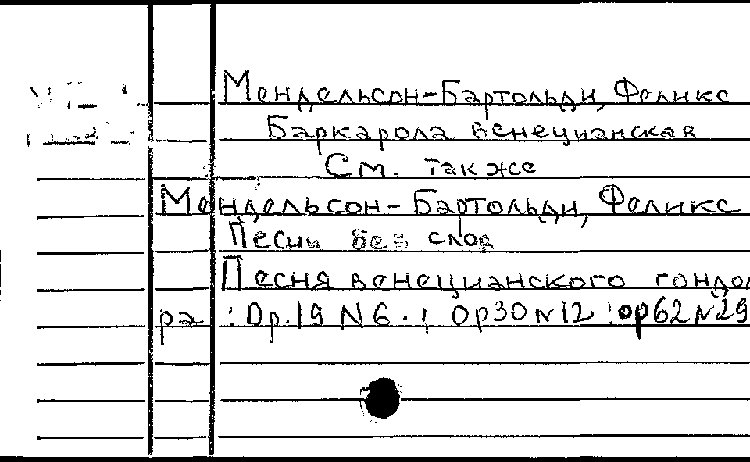 Мендельсон-Бартольди, Феликс
Баркарола венецианская
См. также
Мендельсон-Бартольди, Феликс
Песни без слов
Песня венецианского гондол
ра : Op.19 N6. ; Op30 N12 ; op62 N29